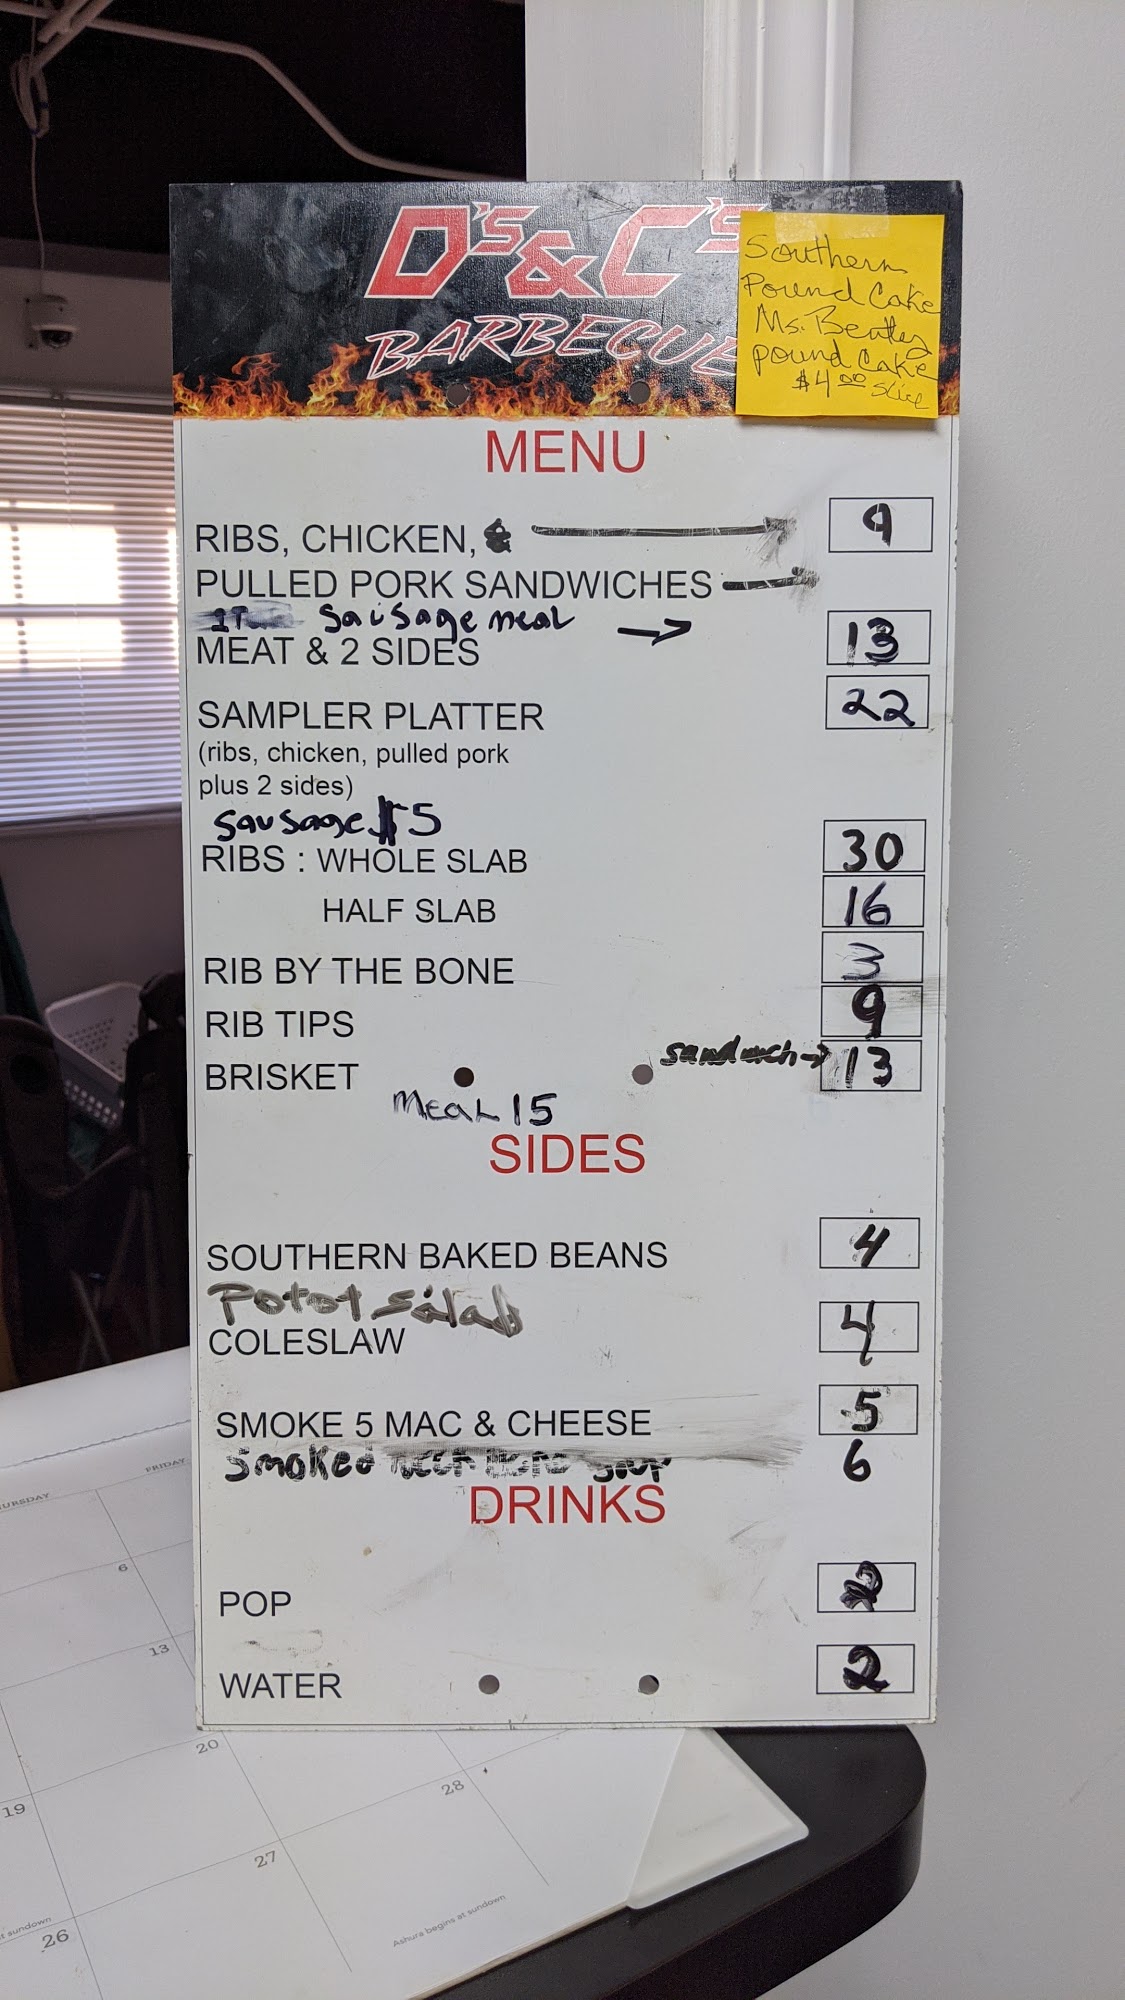 D'S & C'S
BARBECUE
Southern
Pound Cake
Ms. Bentley
pound Cake
$4.00 slice
MENU
RIBS, CHICKEN, & 9
PULLED PORK SANDWICHES
Sausage meal
MEAT & 2 SIDES 13
SAMPLER PLATTER 22
(ribs, chicken, pulled pork
plus 2 sides)
Sausage $5
RIBS : WHOLE SLAB 30
HALF SLAB 16
RIB BY THE BONE 3
RIB TIPS 9
BRISKET sandwich 13
Meal 15
SIDES
SOUTHERN BAKED BEANS 4
Potot Salad
COLESLAW 4
SMOKE 5 MAC & CHEESE 5
Smoked 6
DRINKS
POP 2
WATER 2
THURSDAY
FRIDAY
6
13
20
28
19
27
at sundown
26
Ashura begins at sundown